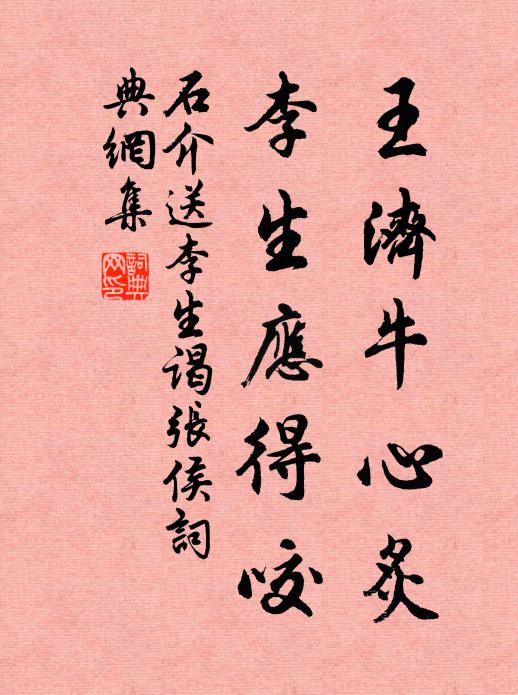 王濟牛心炙
李生應得咬
石介送李生謁張侯詞
典網集
詞典網印